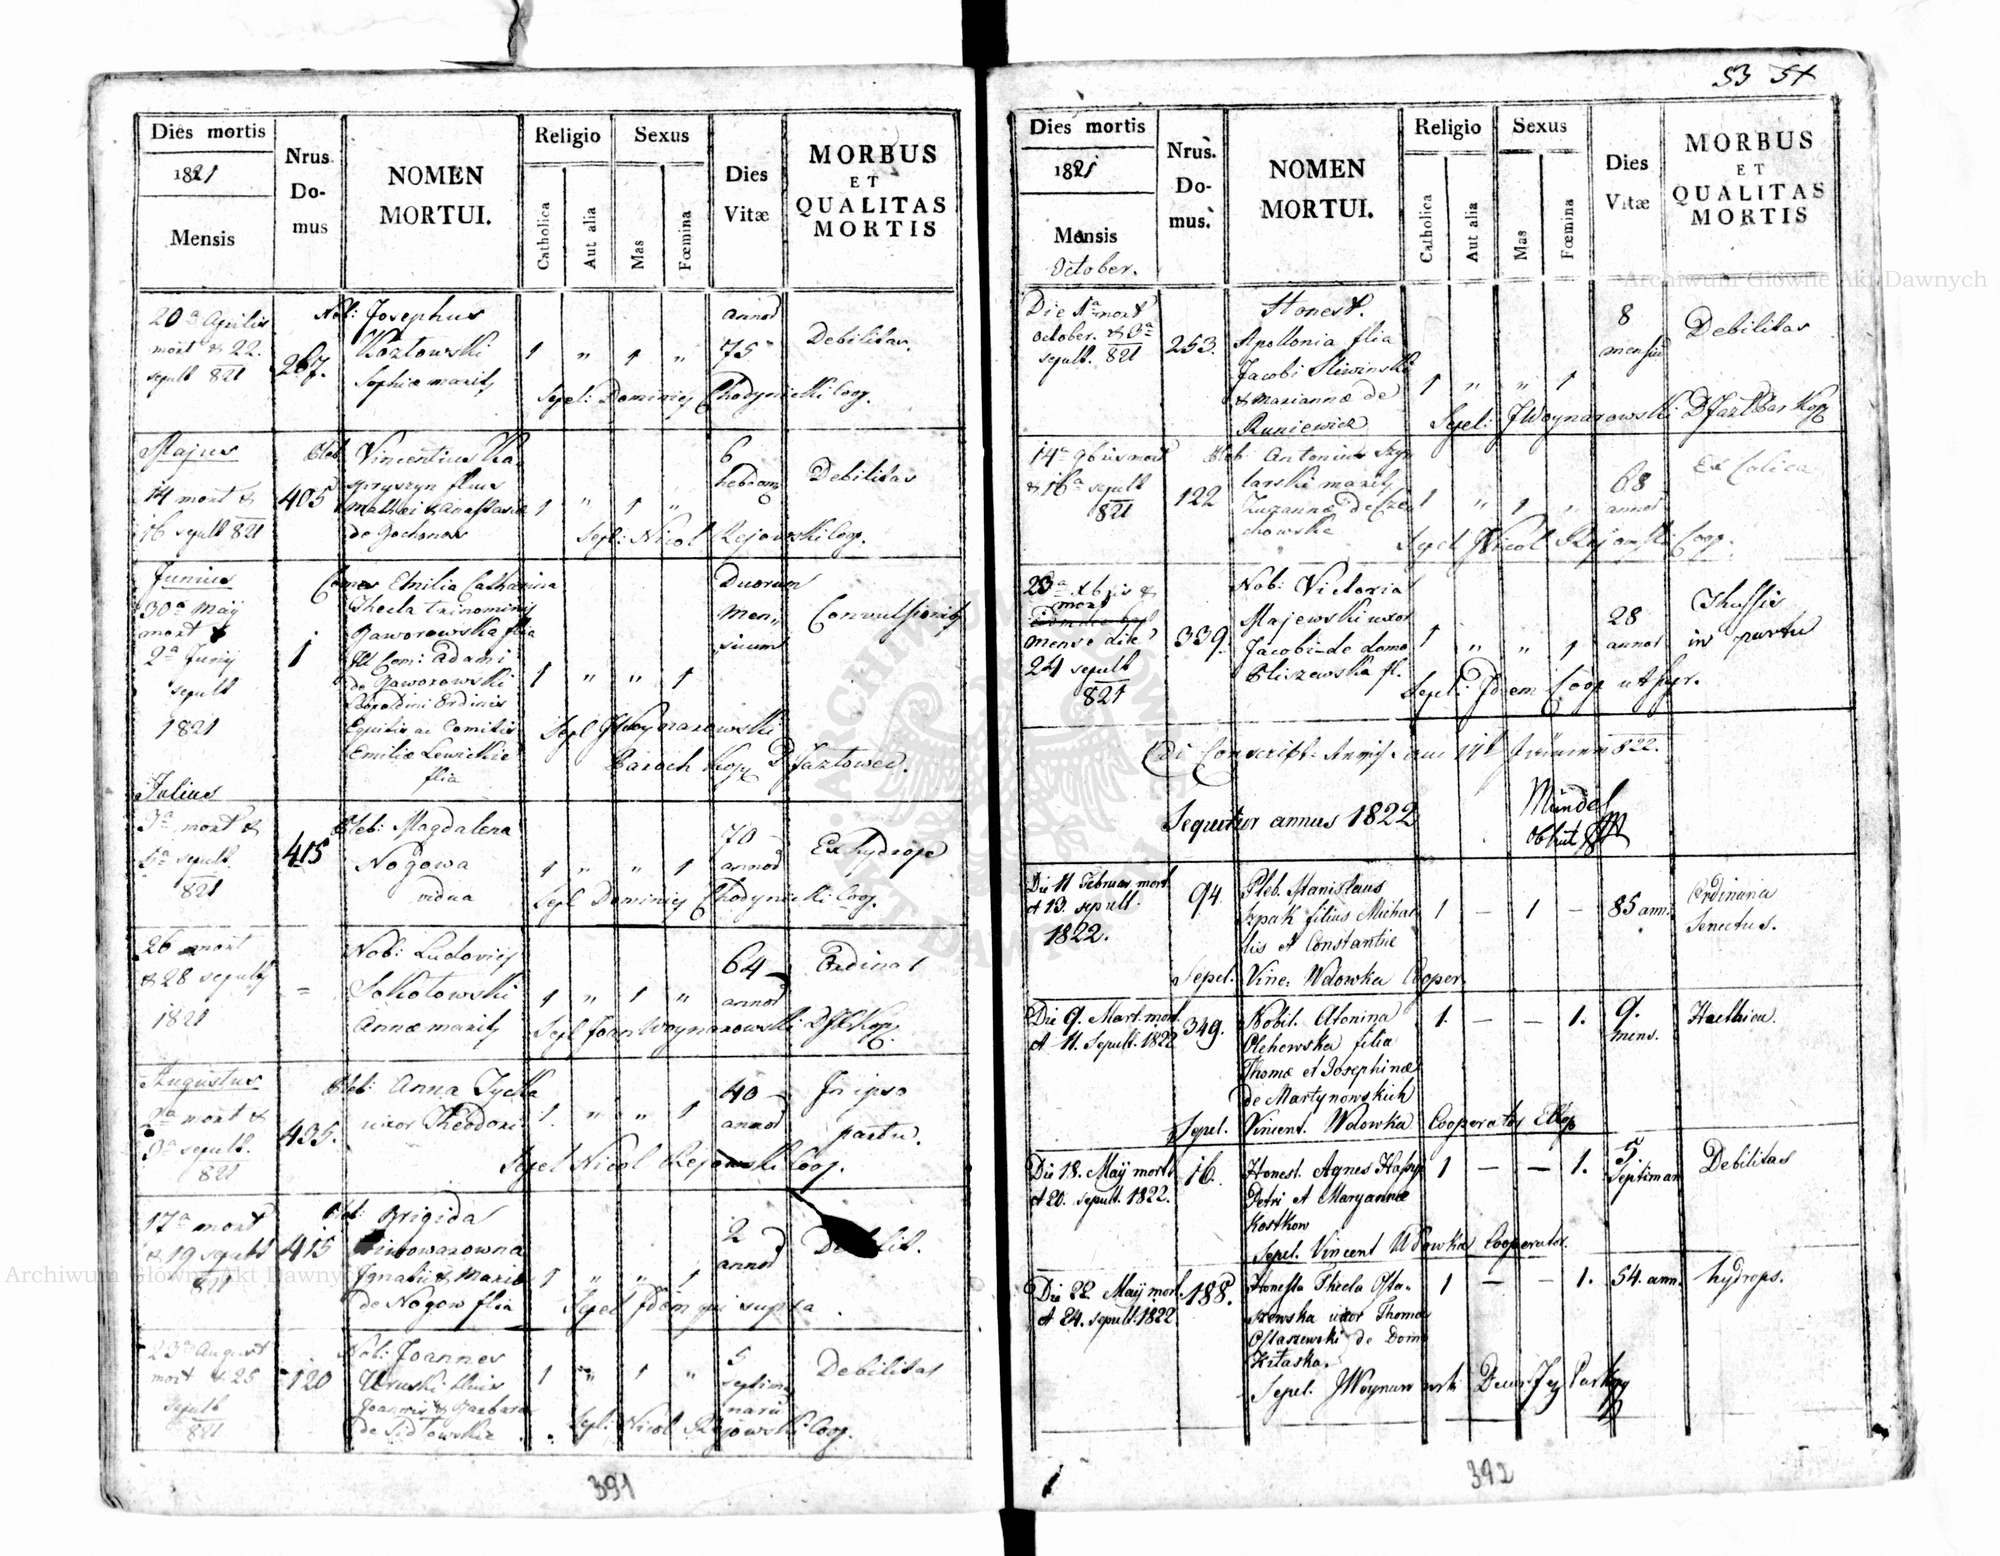 53 54
Dies mortis
1821
Mensis
Nrus
Do-
mus
NOMEN
MORTUI.
Religio
Catholica
Aut alia
Sexus
Mas
Fœmina
Dies
Vitæ
MORBUS
ET
QUALITAS
MORTIS
20a Aprilis
mort & 22.
sepult 821
267.
Nob: Josephus
Kozłowski
Sophiæ marity
1 " 1 "
annor
75
Debilitas.
Sepel: Dominicy Chodynicki Coop.
Majus
14 mort &
16 sepult 821
405
Pleb: Vincentius Ka-
spryszyn filius
Mathei & Anastasia
de Gochanow
1 " 1 "
6
hebdom
Debilitas
Sepl: Nicol Rejowski Coop.
Junius
30a Maÿ
mort &
2a Junÿ
sepult
1821
1
Comes Emilia Catharina
Thecla trinominis
Jaworowska filia
Ill Com: Adami
de Jaworowski
Leopoldini Ordinis
Equitis ac Comitis
Emiliæ Lewickie
filia
1 " " 1
Duorum
Men„
sium
Convulsionis
Sepl J Woynarowski
Paroch Kopy D Jazłowec.
Julius
3a mort &
5a sepult.
821
415
Pleb: Magdalena
Nogowa
vidua
1 " " 1
70
annor
Ex hydrope
Sepl Dominicy Chodynicki Coop.
26 mort
& 28 sepult
1821
=
Nob: Ludovicy
Sokołowski
Annæ marity
1 " 1 "
64
annor
Ordinar
Sepl Joan Woynarowski D J L Kopy.
Augustus
2a mort &
3a sepult.
821
435.
Pleb: Anna Tycka
uxor Theodori
1. " " 1
40
annor
In ipso
partu.
Sepel Nicol Rejowski Coop.
17a mort
& 19 sepult
821
415
Pleb: Brigida
Ignatii & Maria
de Nogow filia
1 " " 1
2
annor
Debilit.
Sepel Idem qui supra.
23a August
mort & 25
sepult
821
120
Nob: Joannes
Wruski filius
Joannis & Barbara
de Sidłowskie
1 " 1 "
5
septima
narii
Debilitas
Sepl: Nicol Rejowski Coop.
391
Dies mortis
1821
Mensis
October.
Nrus.
Do-
mus.
NOMEN
MORTUI.
Religio
Catholica
Aut alia
Sexus
Mas
Fœmina
Dies
Vitæ
MORBUS
ET
QUALITAS
MORTIS
Die 1a mort
October. & 3a
sepult. 821
253.
Honest.
Apollonia filia
Jacobi Sliwinski
& Mariannæ de
Runiewicz
1 " " 1
8
mensiu
Debilitas
Sepel: J Woynarowski D Jazł Par Kopy
14a 9bris mort
& 16a sepult
821
122
Pleb: Antonius Szyn
larski marity
Zuzannæ de Cze
chowska
1 " 1 "
68
annor
Ex Colica
Sepel Nicol Rejowski Coop.
23a Xbris &
mort
mense die
24 sepult
821
339.
Nob: Victoria
Majewski uxor
Jacobi de domo
Oliszewska fl.
1 " " 1
28
annor
Thussis
in partu
Sepel: Idem Coop ut supr.
822.
Sequitur annus 1822
Mündel
Die 11 Februar mort.
et 13. sepult.
1822.
94.
Pleb. Stanislaus
Szpak filius Micha-
lis et Constantiæ
1 — 1 —
85 ann.
Ordinaria
Senectus.
Sepel. Vinc. Wdowka Cooper.
Die 9. Mart. mort.
et 11. Sepult. 1822
349.
Nobil. Antonina
Olehowska filia
Thomæ et Josephinæ
de Martynowskich
1. — — 1.
9.
mens.
Haethica.
Sepel. Vincent. Wdowka Cooperator
Die 18. Maÿ mort.
et 20. sepult. 1822.
16.
Honest. Agnes
Petri et Maryannæ
Kostkow
1 — — 1.
5.
Septiman
Debilitas
Sepel. Vincent Wdowka Cooperator.
Die 22. Maÿ mort.
et 24. sepult. 1822
188.
Honesta Thecla Osta-
szewska uxor Thomæ
Ostaszewski de Domo
Kitaska.
1 — — 1.
54. ann.
hydrops.
Sepel. J Woynarowski
392
Archiwum Główne Akt Dawnych
Archiwum Główne Akt Dawnych